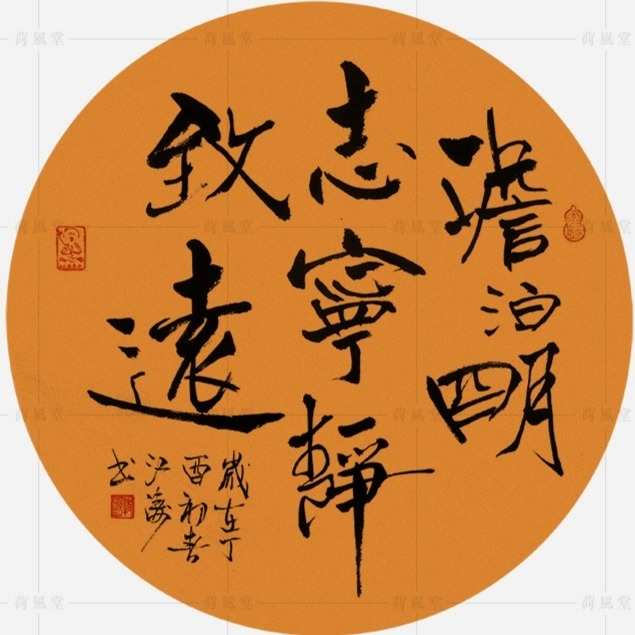 澹泊明
志寧靜
致遠
歲在丁
酉初春
書
荷風堂